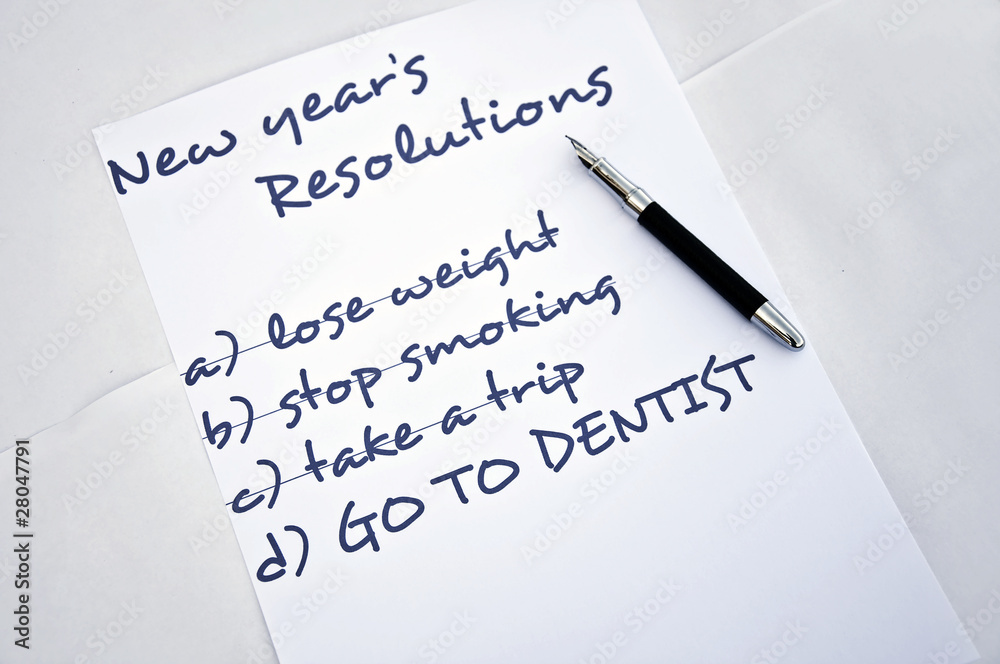 New year's
Resolutions
a) lose weight
b) stop smoking
c) take a trip
d) GO TO DENTIST
Adobe Stock | #28047791